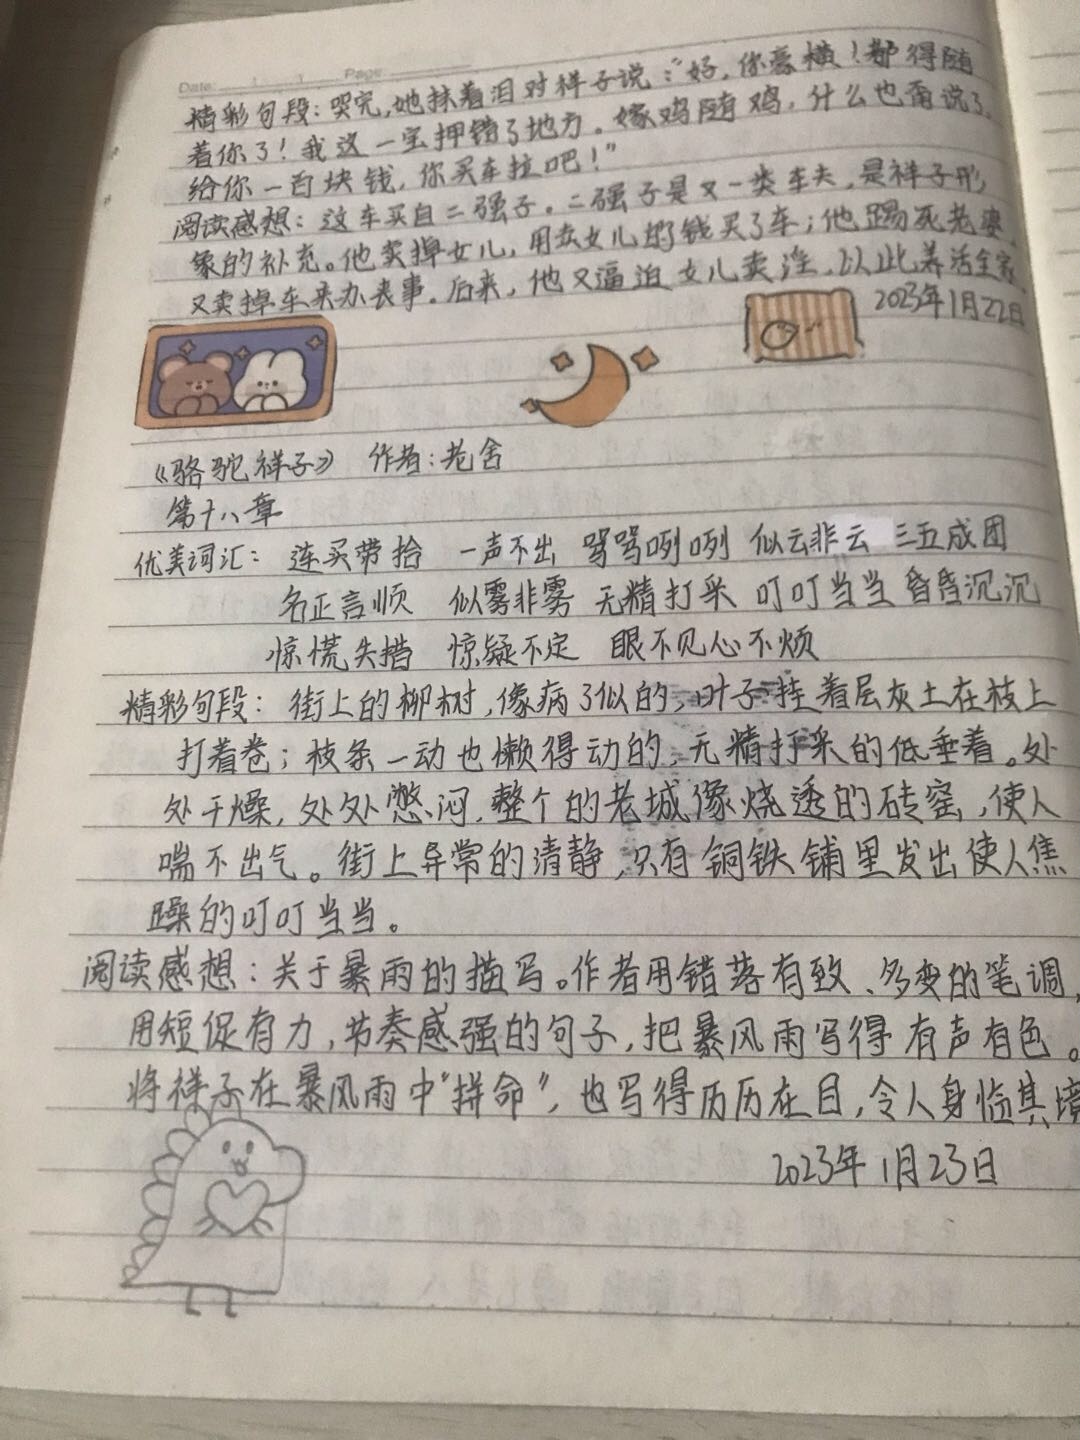 Date: Page:
精彩句段：哭完，她抹着泪对祥子说：“好，你豪横！都得随
着你了！我这一宝押错了地方。嫁鸡随鸡，什么也甭说了。
给你一百块钱，你买车拉吧！”
阅读感想：这车买自二强子。二强子是又一类车夫，是祥子形
象的补充。他卖掉女儿，用卖女儿的钱买了车；他踢死老婆，
又卖掉车来办丧事。后来，他又逼迫女儿卖淫，以此养活全家
2023年1月22日
《骆驼祥子》 作者：老舍
第十八章
优美词汇： 连买带拾 一声不出 骂骂咧咧 似云非云 三五成团
名正言顺 似雾非雾 无精打采 叮叮当当 昏昏沉沉
惊慌失措 惊疑不定 眼不见心不烦
精彩句段：街上的柳树，像病了似的，叶子挂着层灰土在枝上
打着卷；枝条一动也懒得动的，无精打采的低垂着。处
处干燥，处处憋闷，整个的老城像烧透的砖窑，使人
喘不出气。街上异常的清静，只有铜铁铺里发出使人焦
躁的叮叮当当。
阅读感想：关于暴雨的描写。作者用错落有致、多变的笔调，
用短促有力，节奏感强的句子，把暴风雨写得有声有色。
将祥子在暴风雨中“拼命”，也写得历历在目，令人身临其境
2023年1月23日